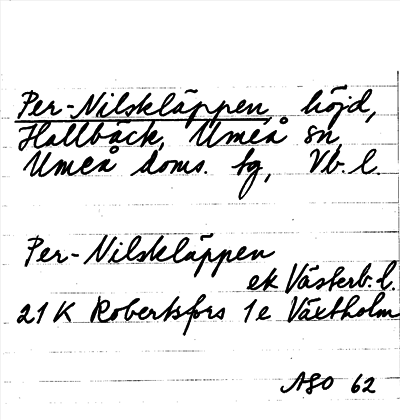 Per-Nilskläppen, höjd,
Hallbäck, Umeå sn,
Umeå doms. tg, Vb. l.
Per-Nilskläppen
ek Västerb. l.
21 K Robertsfors 1 e Växtholm
ASO 62